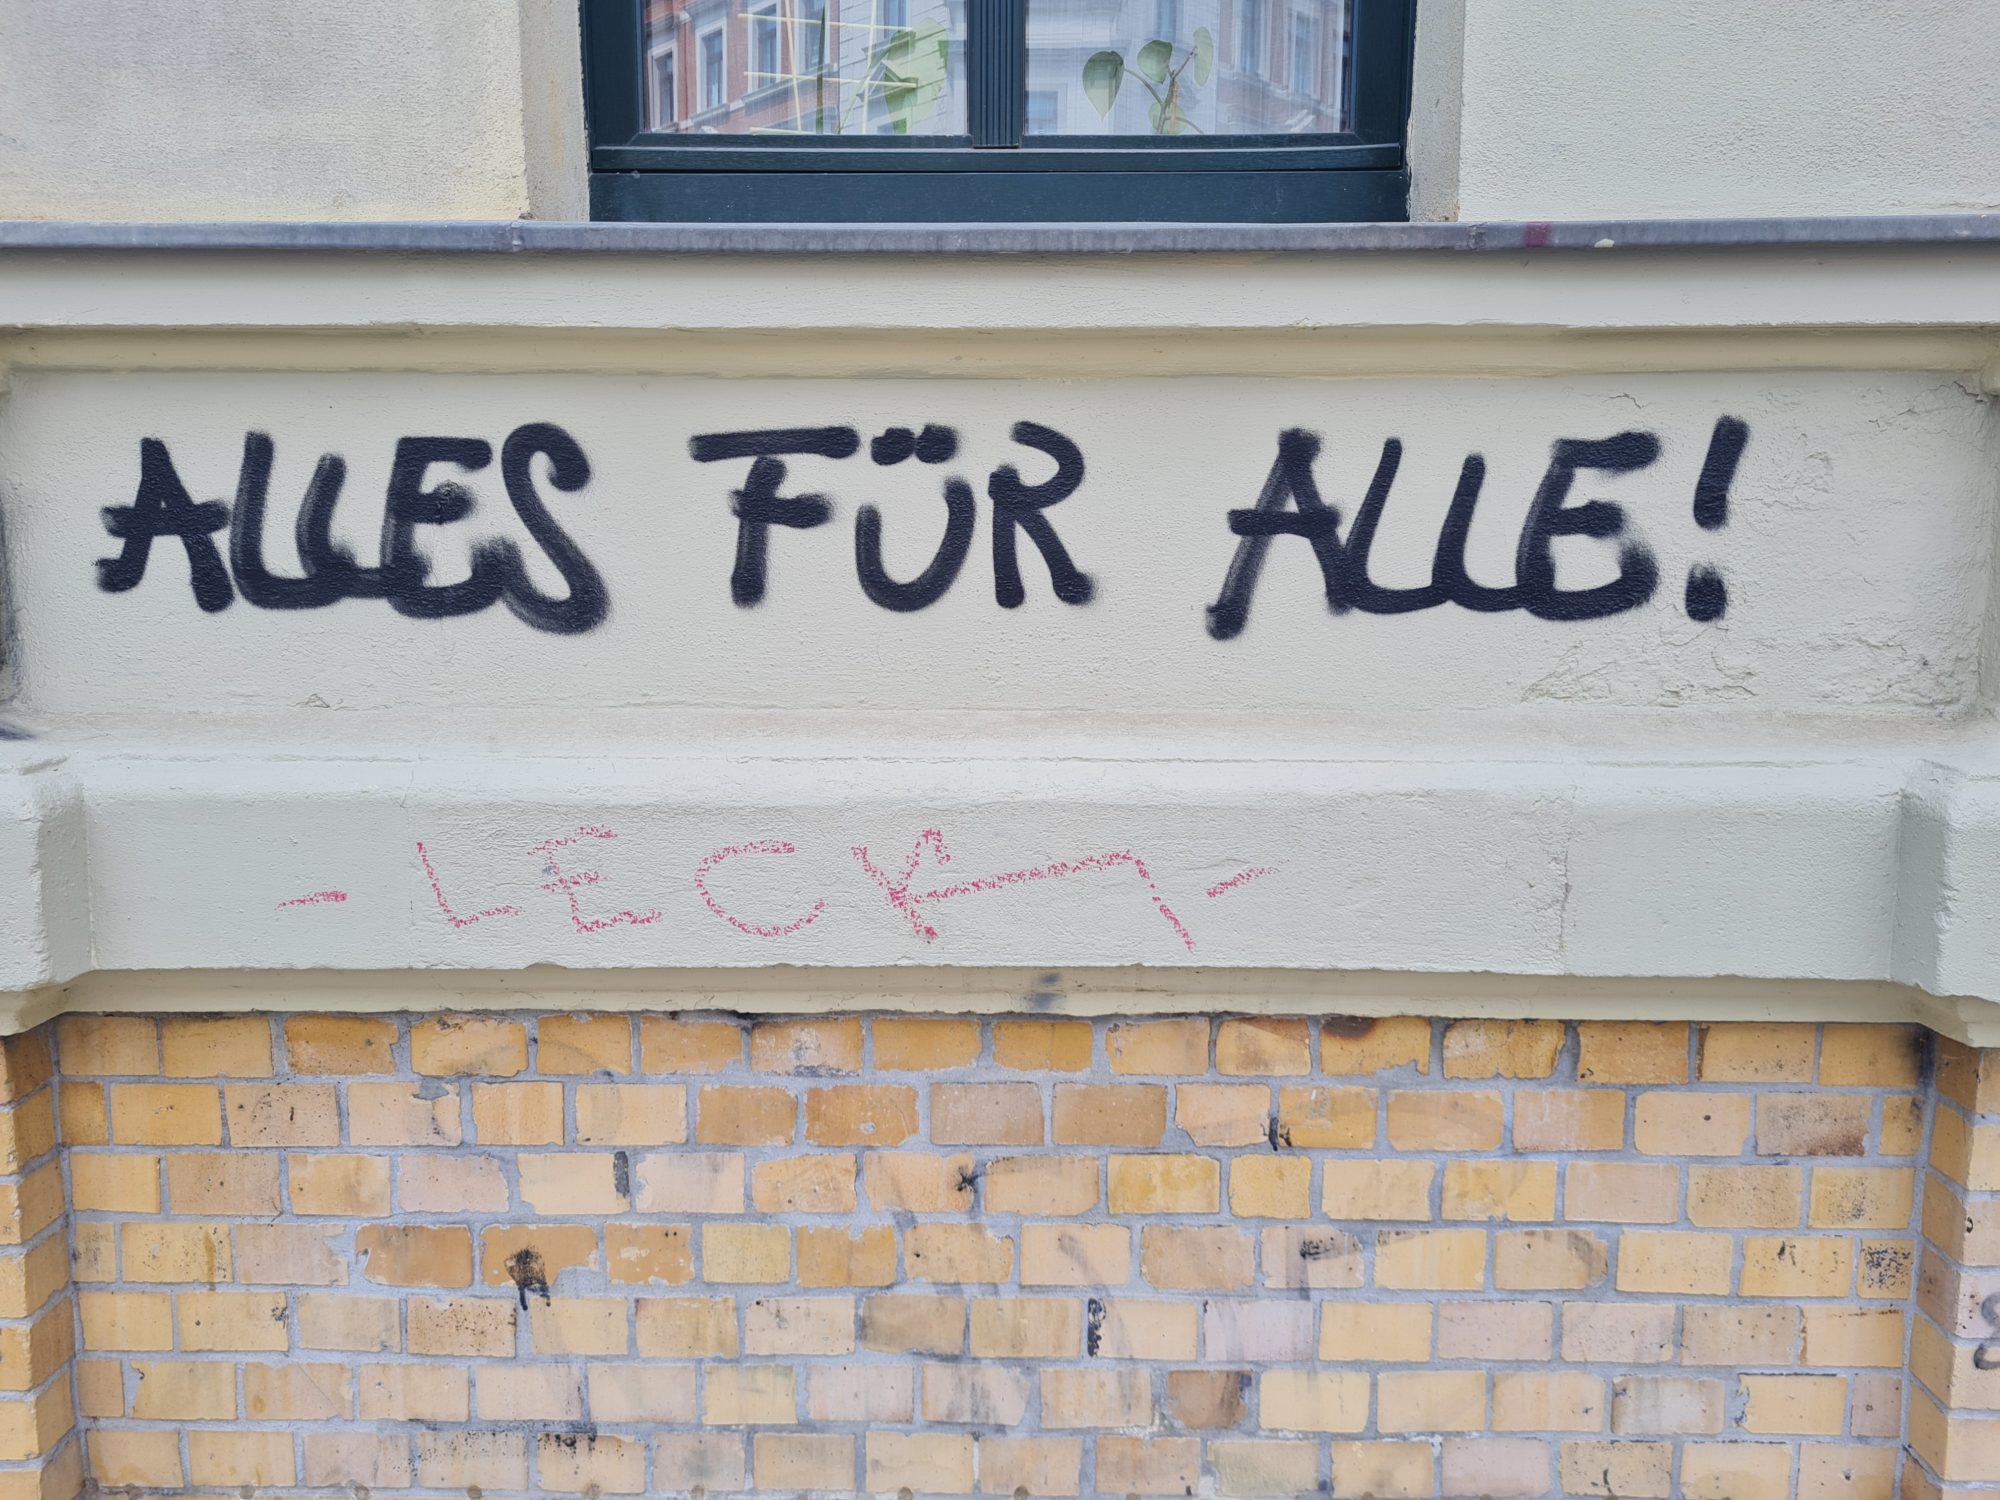 ALLES FÜR ALLE!
- LECK -